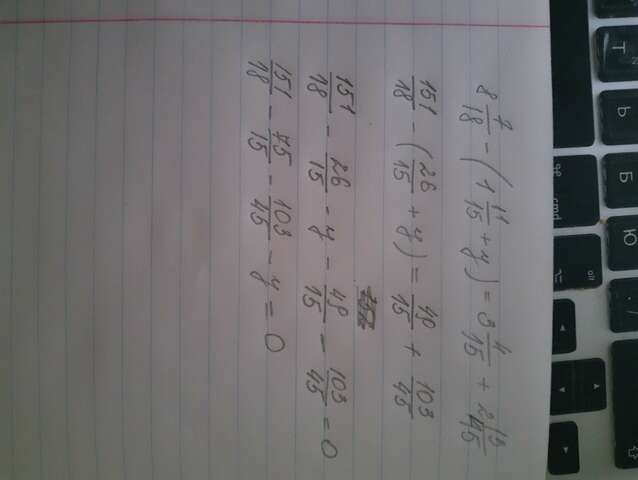 8 7/18 - (1 11/15 + y) = 3 4/15 + 2 13/45
151/18 - (26/15 + y) = 49/15 + 103/45
151/18 - 26/15 - y - 49/15 - 103/45 = 0
151/18 - 75/15 - 103/45 - y = 0
Т
Ь
Б
Ю
cmd
alt